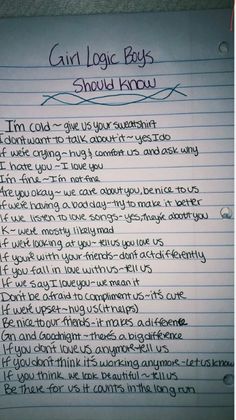 Girl Logic Boys
Should know
I'm cold ~ give us your sweatshirt
I dont want to talk about it ~ yes I do
If we're crying ~ hug & comfort us and ask why
I hate you ~ I love you
I'm fine ~ I'm not fine
Are you okay ~ we care about you, be nice to us
If we're having a bad day ~ try to make it better
If we listen to love songs ~ yes, they're about you
K ~ we're mostly likely mad
If we't looking at you ~ tell us you love us
If you're with your friends ~ dont act differently
If you fall in love with us ~ tell us
If we say I love you ~ we mean it
Don't be afraid to compliment us ~ it's cute
If we're upset ~ hug us (it helps)
Be nice to our friends ~ it makes a difference
Gn and Goodnight ~ there's a big difference
If you dont love us anymore ~ tell us
If you dont think it's working anymore ~ let us know
If you think we look beautiful ~ tell us
Be there for us it counts in the long run